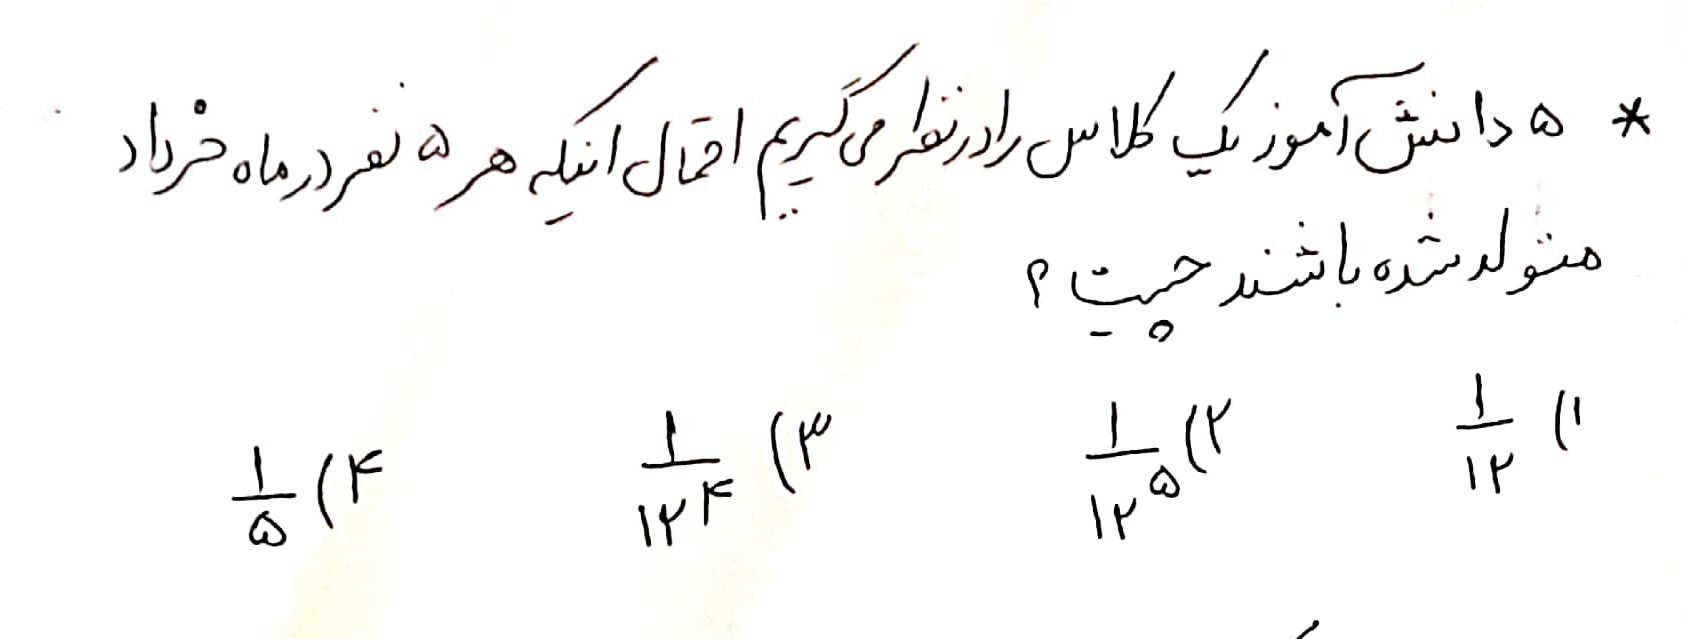 * ۵ دانش آموز یک کلاس را در نظر می گیریم احتمال اینکه هر ۵ نفر در ماه خرداد
متولد شده باشند چیست ؟
۱) ۱/۱۲ ۲) ۱/۱۲^۵ ۳) ۱/۱۲^۴ ۴) ۱/۵